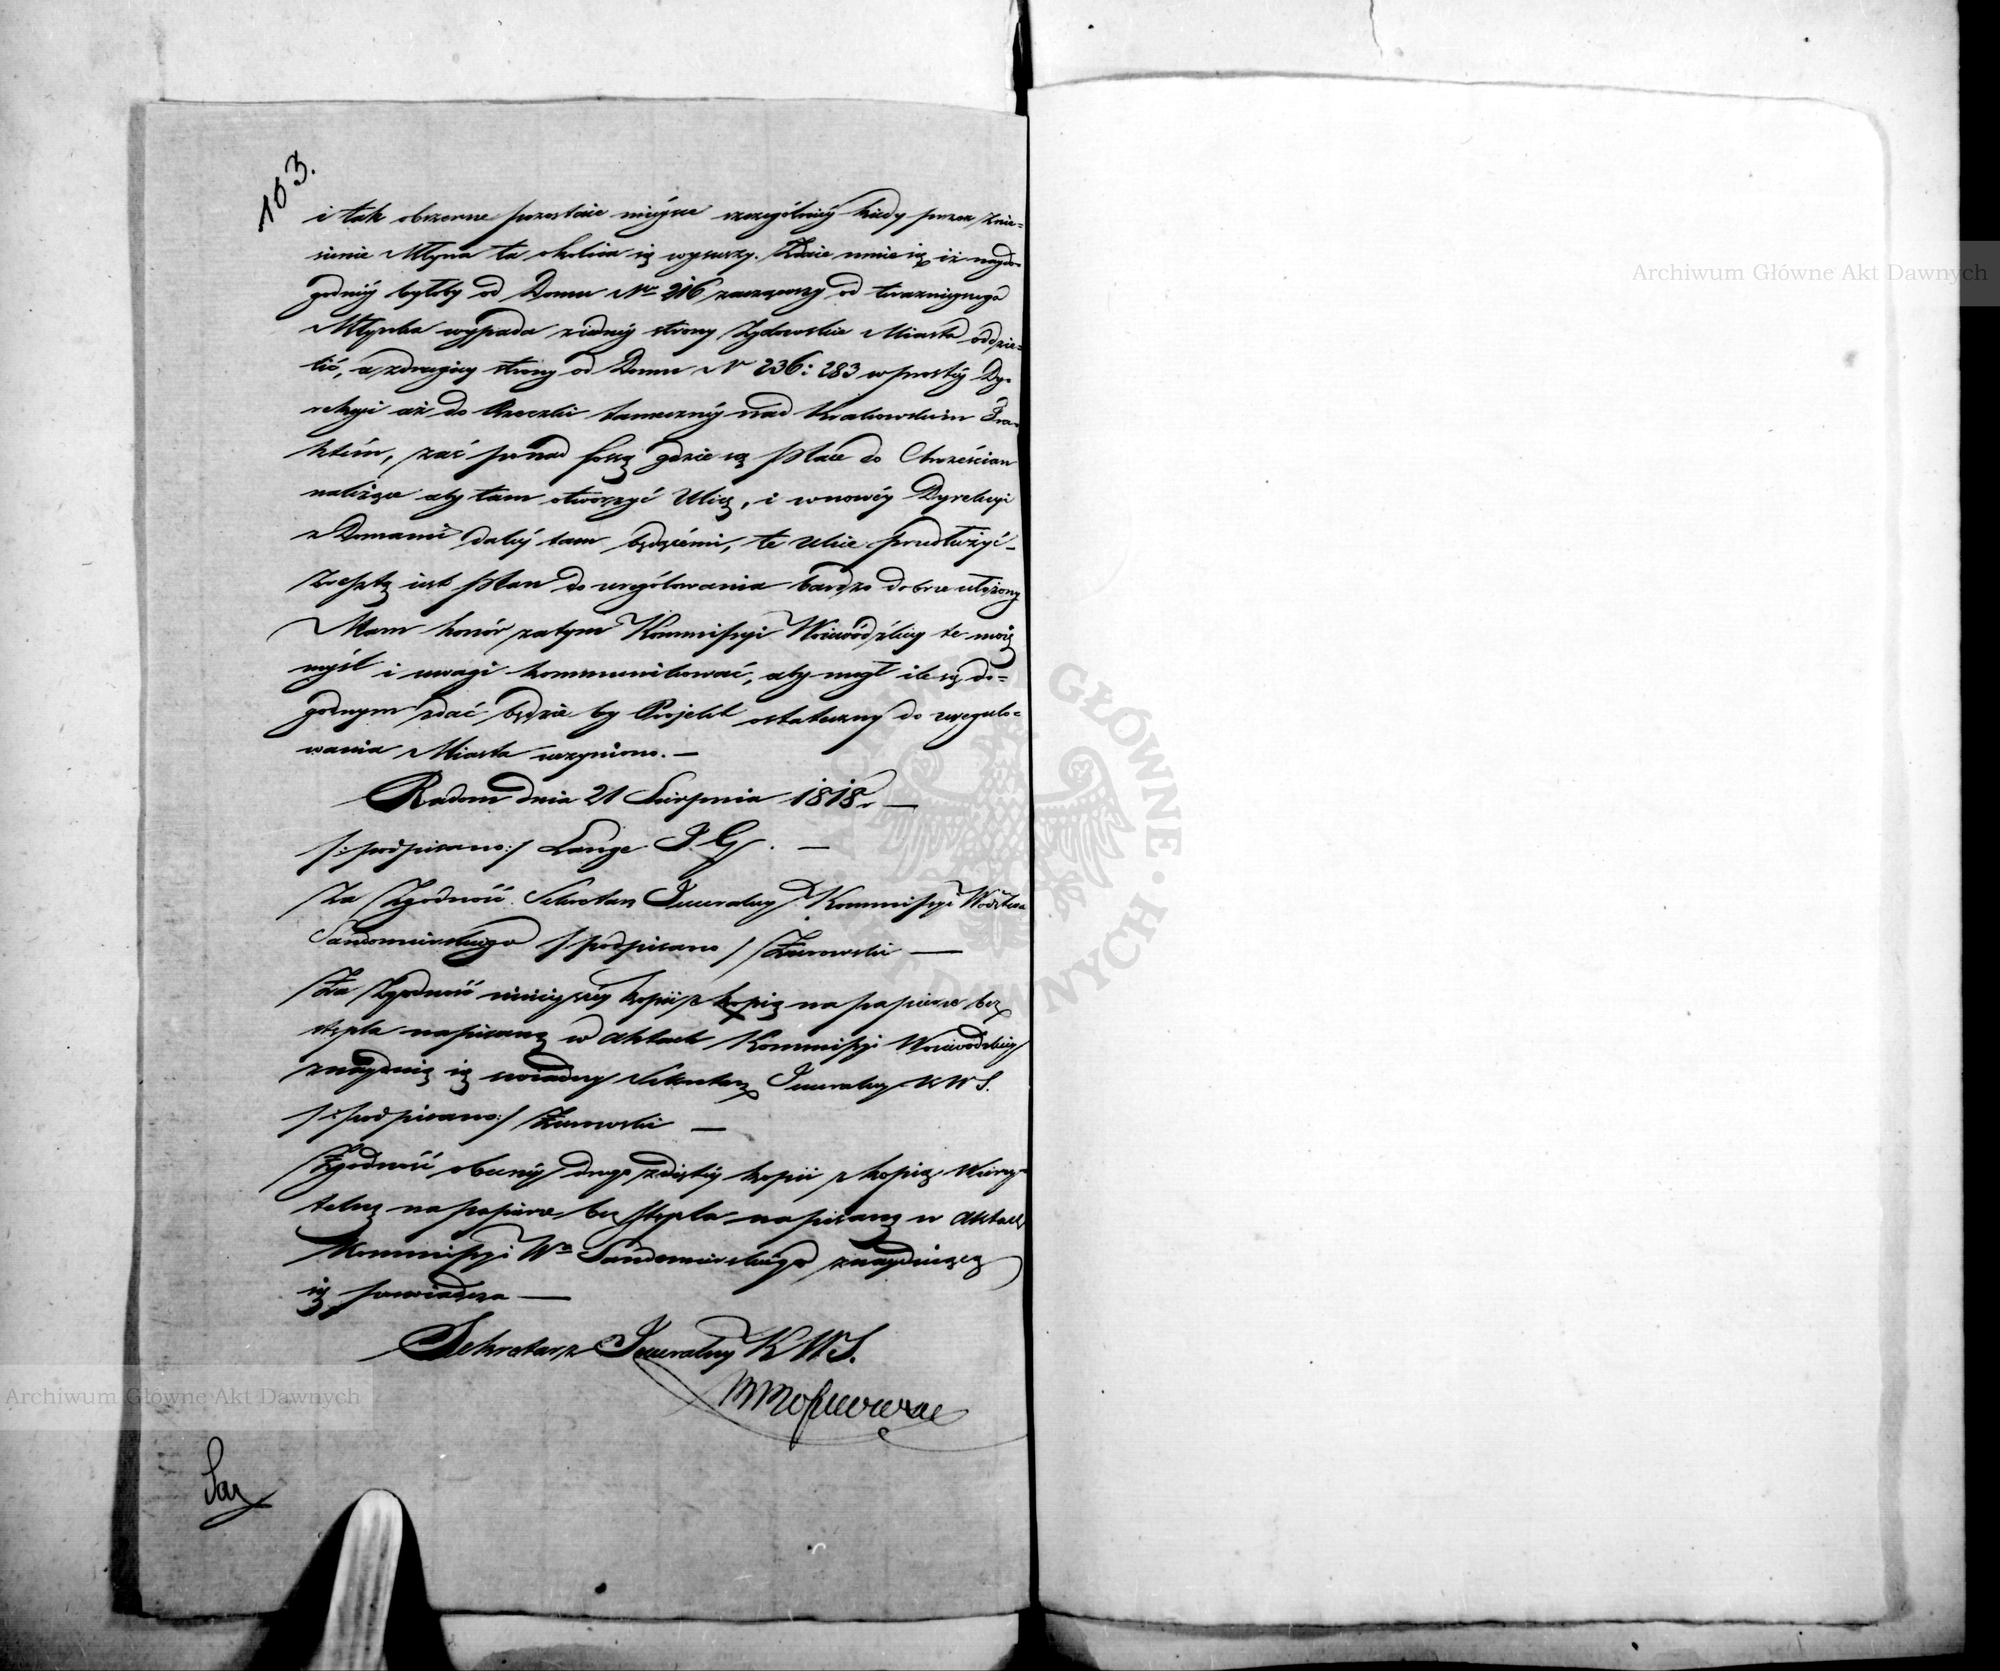 103.
i tak obszerne pozostaie mieysce szczególniey kiedy przez znie=
sienie Młyna ta okolica się wysuszy. Zdaie mnie się iż naydo=
godniey byłoby od Domu Nro 216 zacząwszy od teraznieyszego
Młynka wypada z iedney strony Żydowskie Miasto oddzie=
lić, a z drugiey strony od Domu N 236: 283 w prostey Dy=
rekcyi aż do Rzeczki tameczney nad Krakowskim Tra=
ktem, zaś ponad fossą gdzie są Place do Chrześcian
należące aby tam otworzyć Ulicę, i w nowey Dyrekcyi
z Domami daley tam będącemi, te Ulice przedłużyć –
Zresztą iest Plan do uregulowania bardzo dobrze ułożony
Mam honor zatym Kommissyi Woiewódzkiey te moie
myśl i uwagi kommunikować, aby mogł ile się do=
godnym zdać będzie by Projekt ostateczny do uregulo=
wania Miasta uczyniono. –
Radom dnia 21 Sierpnia 1818 r. –
/:podpisano:/ Lange J. G. –
Za Zgodność Sekretarz Jeneralny Kommissyi Wdztwa
Sandomierskiego /podpisano/ Żurowski –
Za Zgodność ninieyszey kopii z kopią na papierze bez
stępla napisaną w Aktach Kommissyi Woiewodzkiey
znayduiącą się świadczy Sekretarz Jeneralny KWS.
/:podpisano:/ Żurowski –
Zgodność obecney drogo zdiętey kopii z kopią Wierzy=
telną na papierze bez stępla napisaną w Aktach
Kommissyi Wa Sandomierskiego znayduiącą
się poswiadcza –
Sekretarz Jeneralny KWS.
Archiwum Główne Akt Dawnych
Archiwum Główne Akt Dawnych
ARCHIWUM GŁÓWNE AKT DAWNYCH